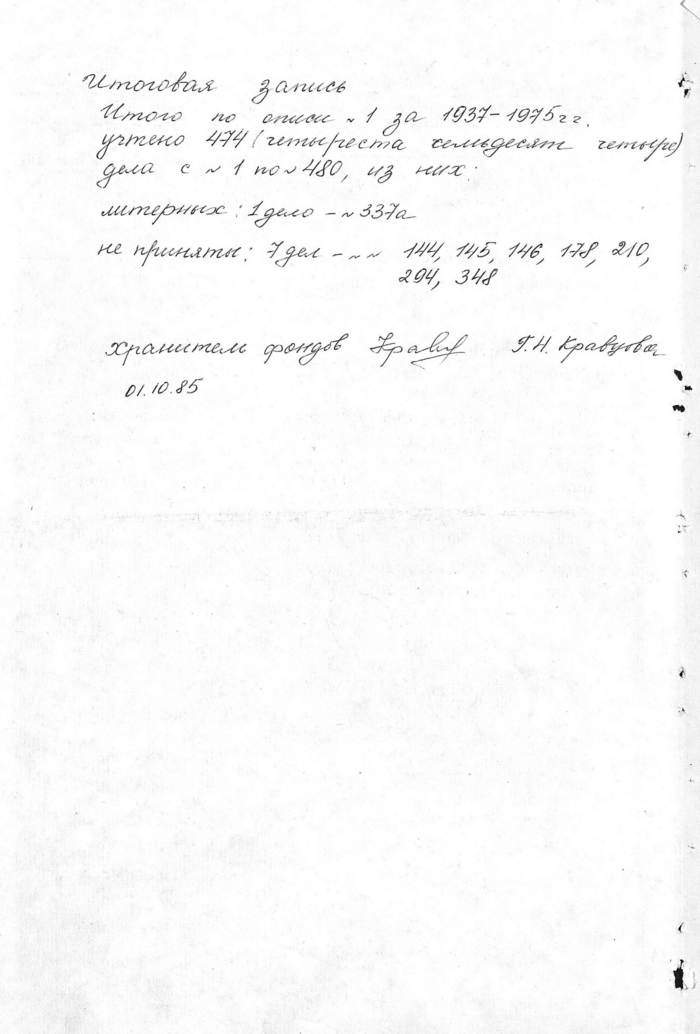 Итоговая запись
Итого по описи ~ 1 за 1937-1975 гг.
учтено 474 (четыреста семьдесят четыре)
дела с ~ 1 по ~ 480, из них:
литерных: 1 дело - ~ 337а
не приняты: 7 дел - ~ ~ 144, 145, 146, 178, 210,
294, 348
хранитель фондов Г.Н. Кравцова
01.10.85